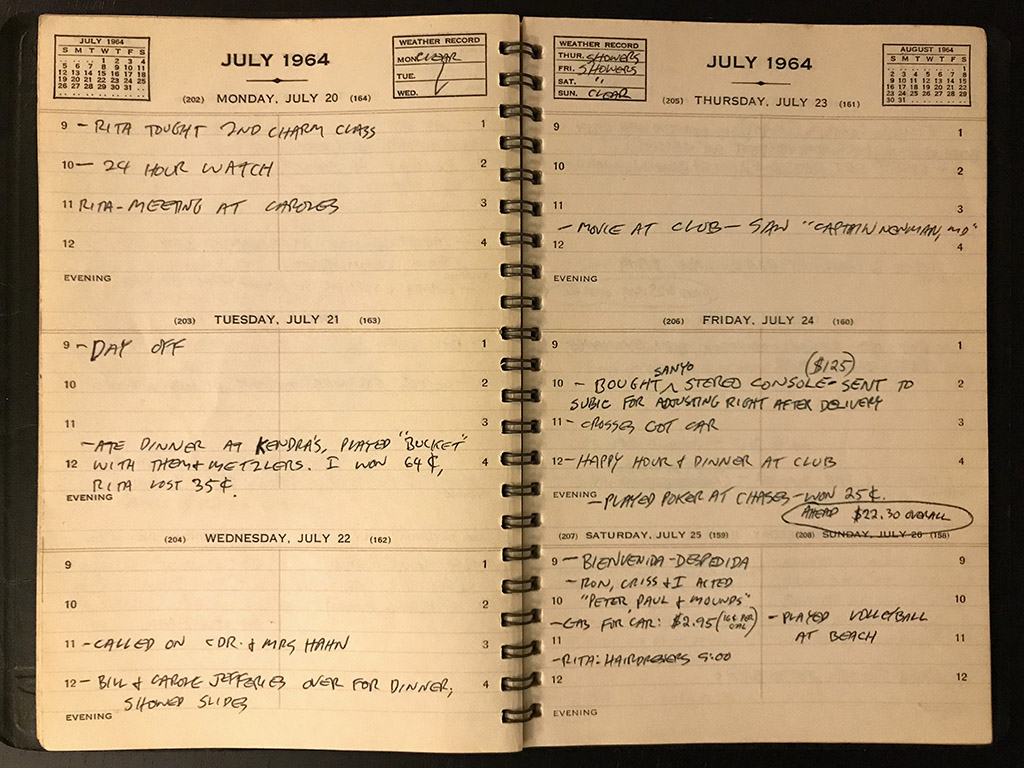 JULY 1964
S M T W T F S
1 2 3 4
5 6 7 8 9 10 11
12 13 14 15 16 17 18
19 20 21 22 23 24 25
26 27 28 29 30 31
JULY 1964
WEATHER RECORD
MON. CLEAR
TUE.
WED.
(202) MONDAY, JULY 20 (164)
9 - RITA TOUGHT 2ND CHARM CLASS 1
10 - 24 HOUR WATCH 2
11 RITA - MEETING AT CAROLES 3
12 4
EVENING
(203) TUESDAY, JULY 21 (163)
9 - DAY OFF 1
10 2
11 3
- ATE DINNER AT KENDRA'S, PLAYED "BUCKET"
12 WITH THEM & METZLERS. I WON 64¢, 4
RITA LOST 35¢.
EVENING
(204) WEDNESDAY, JULY 22 (162)
9 1
10 2
11 - CALLED ON CDR. & MRS HAHN 3
12 - BILL & CAROLE JEFFERIES OVER FOR DINNER, 4
SHOWED SLIDES
EVENING
WEATHER RECORD
THUR. SHOWERS
FRI. SHOWERS
SAT. "
SUN. CLEAR
JULY 1964
AUGUST 1964
S M T W T F S
1
2 3 4 5 6 7 8
9 10 11 12 13 14 15
16 17 18 19 20 21 22
23 24 25 26 27 28 29
30 31
(205) THURSDAY, JULY 23 (161)
9 1
10 2
11 3
- MOVIE AT CLUB - SAW "CAPTAIN NEWMAN, MD"
12 4
EVENING
(206) FRIDAY, JULY 24 (160)
9 1
SANYO ($125)
10 - BOUGHT ^ STEREO CONSOLE - SENT TO 2
SUBIC FOR ADJUSTING RIGHT AFTER DELIVERY
11 - CROSSES GOT CAR 3
12 - HAPPY HOUR & DINNER AT CLUB 4
EVENING - PLAYED POKER AT CHASES - WON 25¢.
AHEAD $22.30 OVERALL
(207) SATURDAY, JULY 25 (159)
9 - BIENVENIDA - DESPEDIDA
- RON, CRISS & I ACTED
10 "PETER, PAUL & MOUNDS"
- GAS FOR CAR: $2.95 (16¢ PER GAL)
11
- RITA: HAIRDRESSERS 9:00
12
EVENING
(208) SUNDAY, JULY 26 (158)
9
10
- PLAYED VOLLEYBALL
AT BEACH 11
12